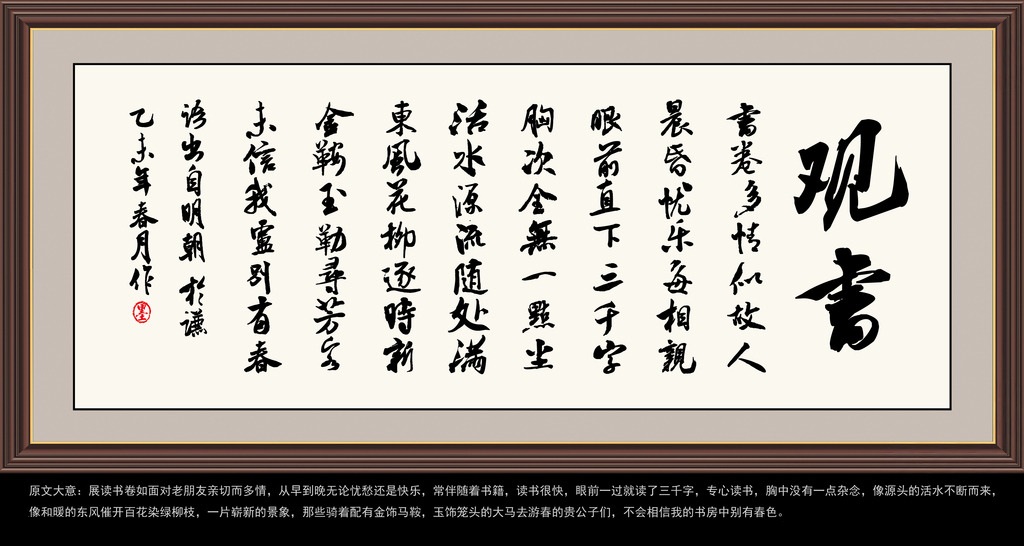 观书
書卷多情似故人
晨昏忧乐每相親
眼前直下三千字
胸次全無一點尘
活水源流随处满
東風花柳逐時新
金鞍玉勒尋芳客
未信我廬别有春
语出自明朝于谦
乙未年春月作
原文大意：展读书卷如面对老朋友亲切而多情，从早到晚无论忧愁还是快乐，常伴随着书籍，读书很快，眼前一过就读了三千字，专心读书，胸中没有一点杂念，像源头的活水不断而来，
像和暖的东风催开百花染绿柳枝，一片崭新的景象，那些骑着配有金饰马鞍，玉饰笼头的大马去游春的贵公子们，不会相信我的书房中别有春色。